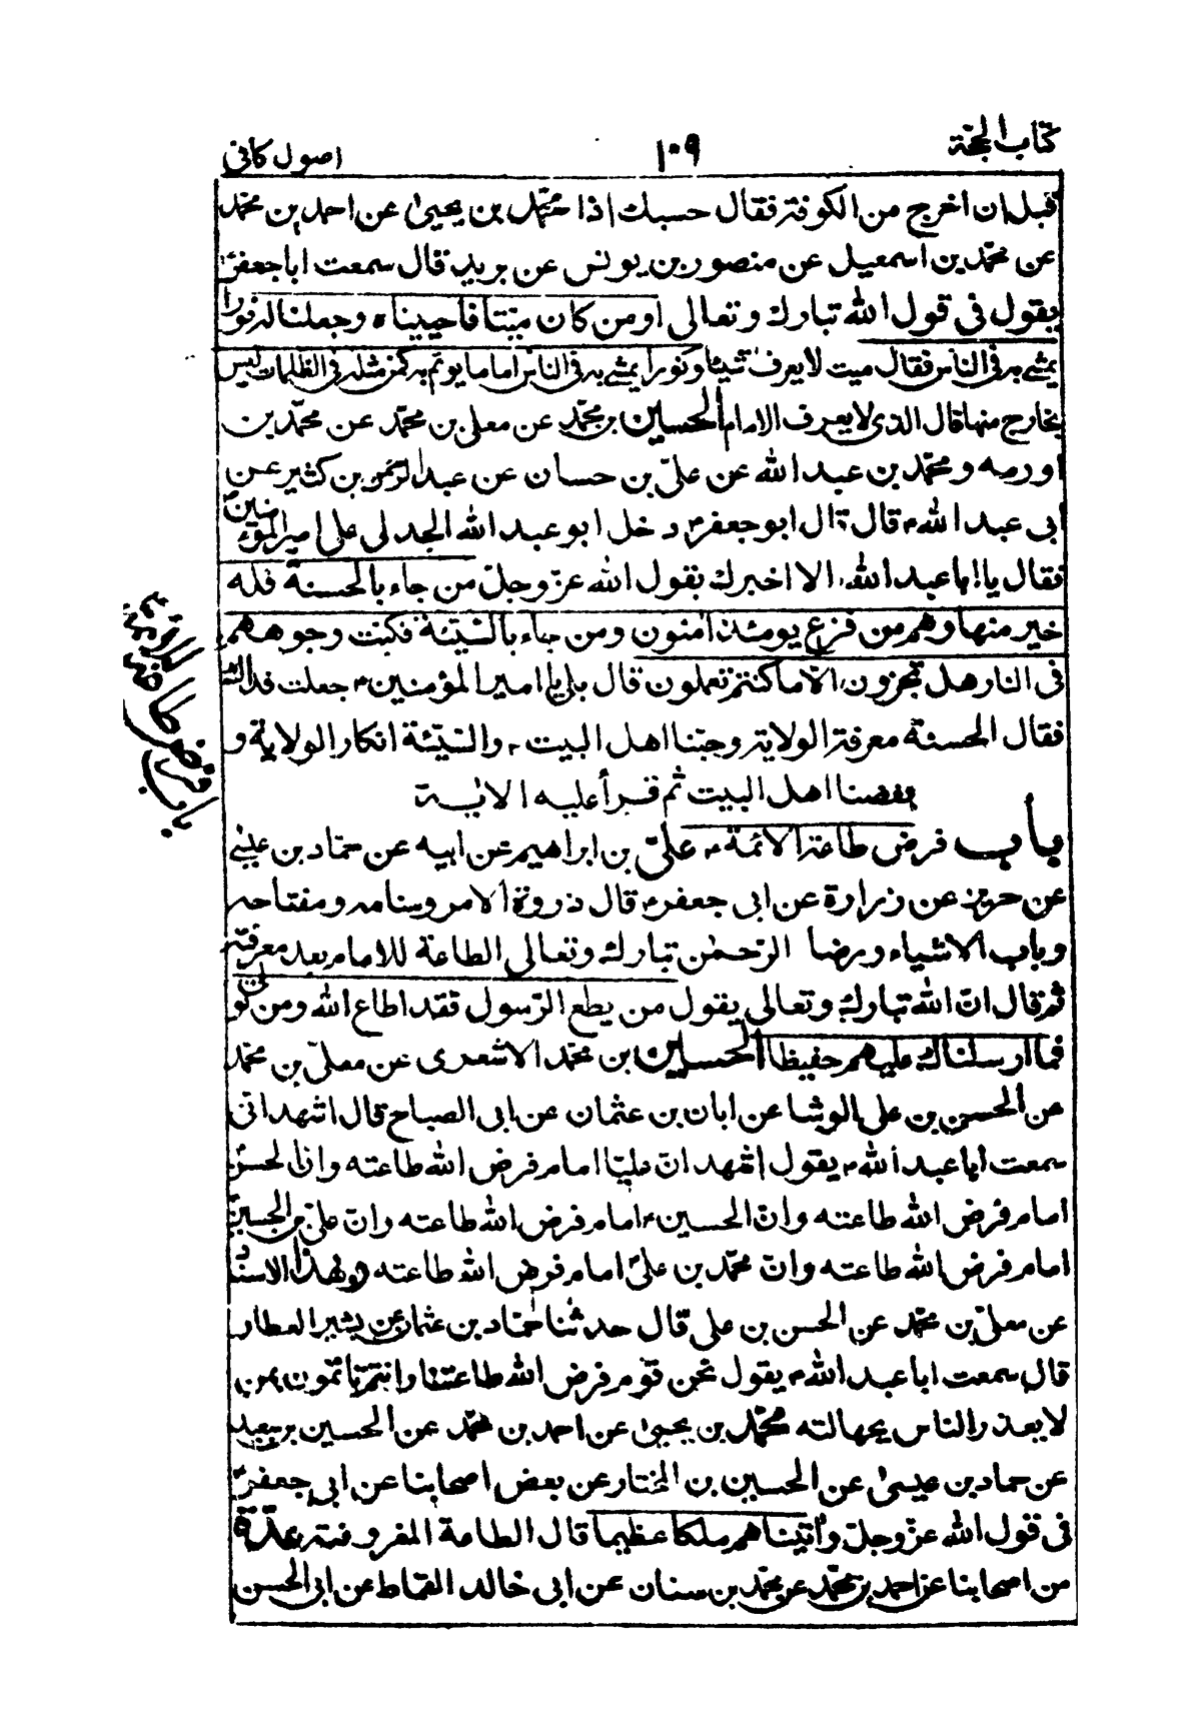 كتاب الحجة
١٠٩
اصول كافى
قبل ان اخرج من الكوفة فقال حسبك اذا محمّد بن يحيىٰ عن احمد بن محمّد
عن محمّد بن اسمعيل عن منصور بن يونس عن بريد قال سمعت ابا جعفرؑ
يقول فى قول الله تبارك وتعالى اومن كان ميتا فاحييناه وجعلنا له نورا
يمشى به فى الناس فقال ميت لا يعرف شيئا ونورا يمشى به فى الناس اماما يوتم به كمن مثله فى الظلمات ليس
بخارج منها قال الذى لا يعرف الامام الحسين بن محمّد عن معلى بن محمّد عن محمّد بن
اورمه ومحمّد بن عبد الله عن علىّ بن حسان عن عبد الرحمٰن بن كثير عن
ابى عبد اللهؑ قال قال ابو جعفرؑ دخل ابو عبد الله الجدلى على امير المؤمنينؑ
فقال يا ابا عبد الله الا اخبرك بقول الله عزّ وجلّ من جاء بالحسنة فله
خير منها وهم من فزع يومئذ امنون ومن جاء بالسّيّئة فكبت وجوههم
فى النار هل تجزون الّا ما كنتم تعملون قال بلى يا امير المؤمنينؑ جعلت فداك
فقال الحسنة معرفة الولاية وحبّنا اهل البيتؑ والسّيّئة انكار الولاية و
بغضنا اهل البيت ثم قرأ عليه الاية
باب فرض طاعة الائمةؑ علىّ بن ابراهيم عن ابيه عن حمّاد بن عيسى
عن حريز عن زرارة عن ابى جعفرؑ قال ذروة الامر وسنامه ومفتاحه
وباب الاشياء ورضا الرّحمٰن تبارك وتعالى الطاعة للامام بعد معرفته
ثم قال انّ الله تبارك وتعالى يقول من يطع الرّسول فقد اطاع الله ومن تولّى
فما ارسلناك عليهم حفيظا الحسين بن محمّد الاشعرى عن معلىّ بن محمّد
عن الحسن بن على الوشا عن ابان بن عثمان عن ابى الصباح قال اشهد انّى
سمعت ابا عبد اللهؑ يقول اشهد انّ عليّا امام فرض الله طاعته وانّ الحسنؑ
امام فرض الله طاعته وانّ الحسينؑ امام فرض الله طاعته وانّ علىّ بن الحسينؑ
امام فرض الله طاعته وانّ محمّد بن علىؑ امام فرض الله طاعته وبهذا الاسناد
عن معلىّ بن محمّد عن الحسن بن على قال حدثنا حمّاد بن عثمان عن بشير العطار
قال سمعت ابا عبد اللهؑ يقول نحن قوم فرض الله طاعتنا وانتم تاتمّون بمن
لا يعذر الناس بجهالته محمّد بن يحيىٰ عن احمد بن محمّد عن الحسين بن سعيد
عن حماد بن عيسىٰ عن الحسين بن المختار عن بعض اصحابنا عن ابى جعفرؑ
فى قول الله عزّ وجلّ واتيناهم ملكا عظيما قال الطاعة المفروضة عدّة
من اصحابنا عن احمد بن محمّد عن محمّد بن سنان عن ابى خالد القماط عن ابى الحسن
باب فرض طا